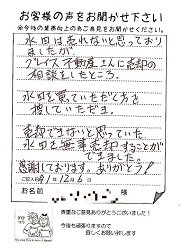 お客様の声をお聞かせ下さい
※今後の業務向上の為ご意見をお聞かせください。
水田は売れないと思っており
ましたが
グレイス不動産さんに売却の
相談をしたところ、
水田を買っていただく方を
捜していただき
売却できないと思っていた
水田を無事売却することが
できました。
感謝しております。ありがとう!
ご記入日 1年12月6日
お名前
貴重なご意見ありがとうございました!
今後も頑張りますので
宜しくお願い致します